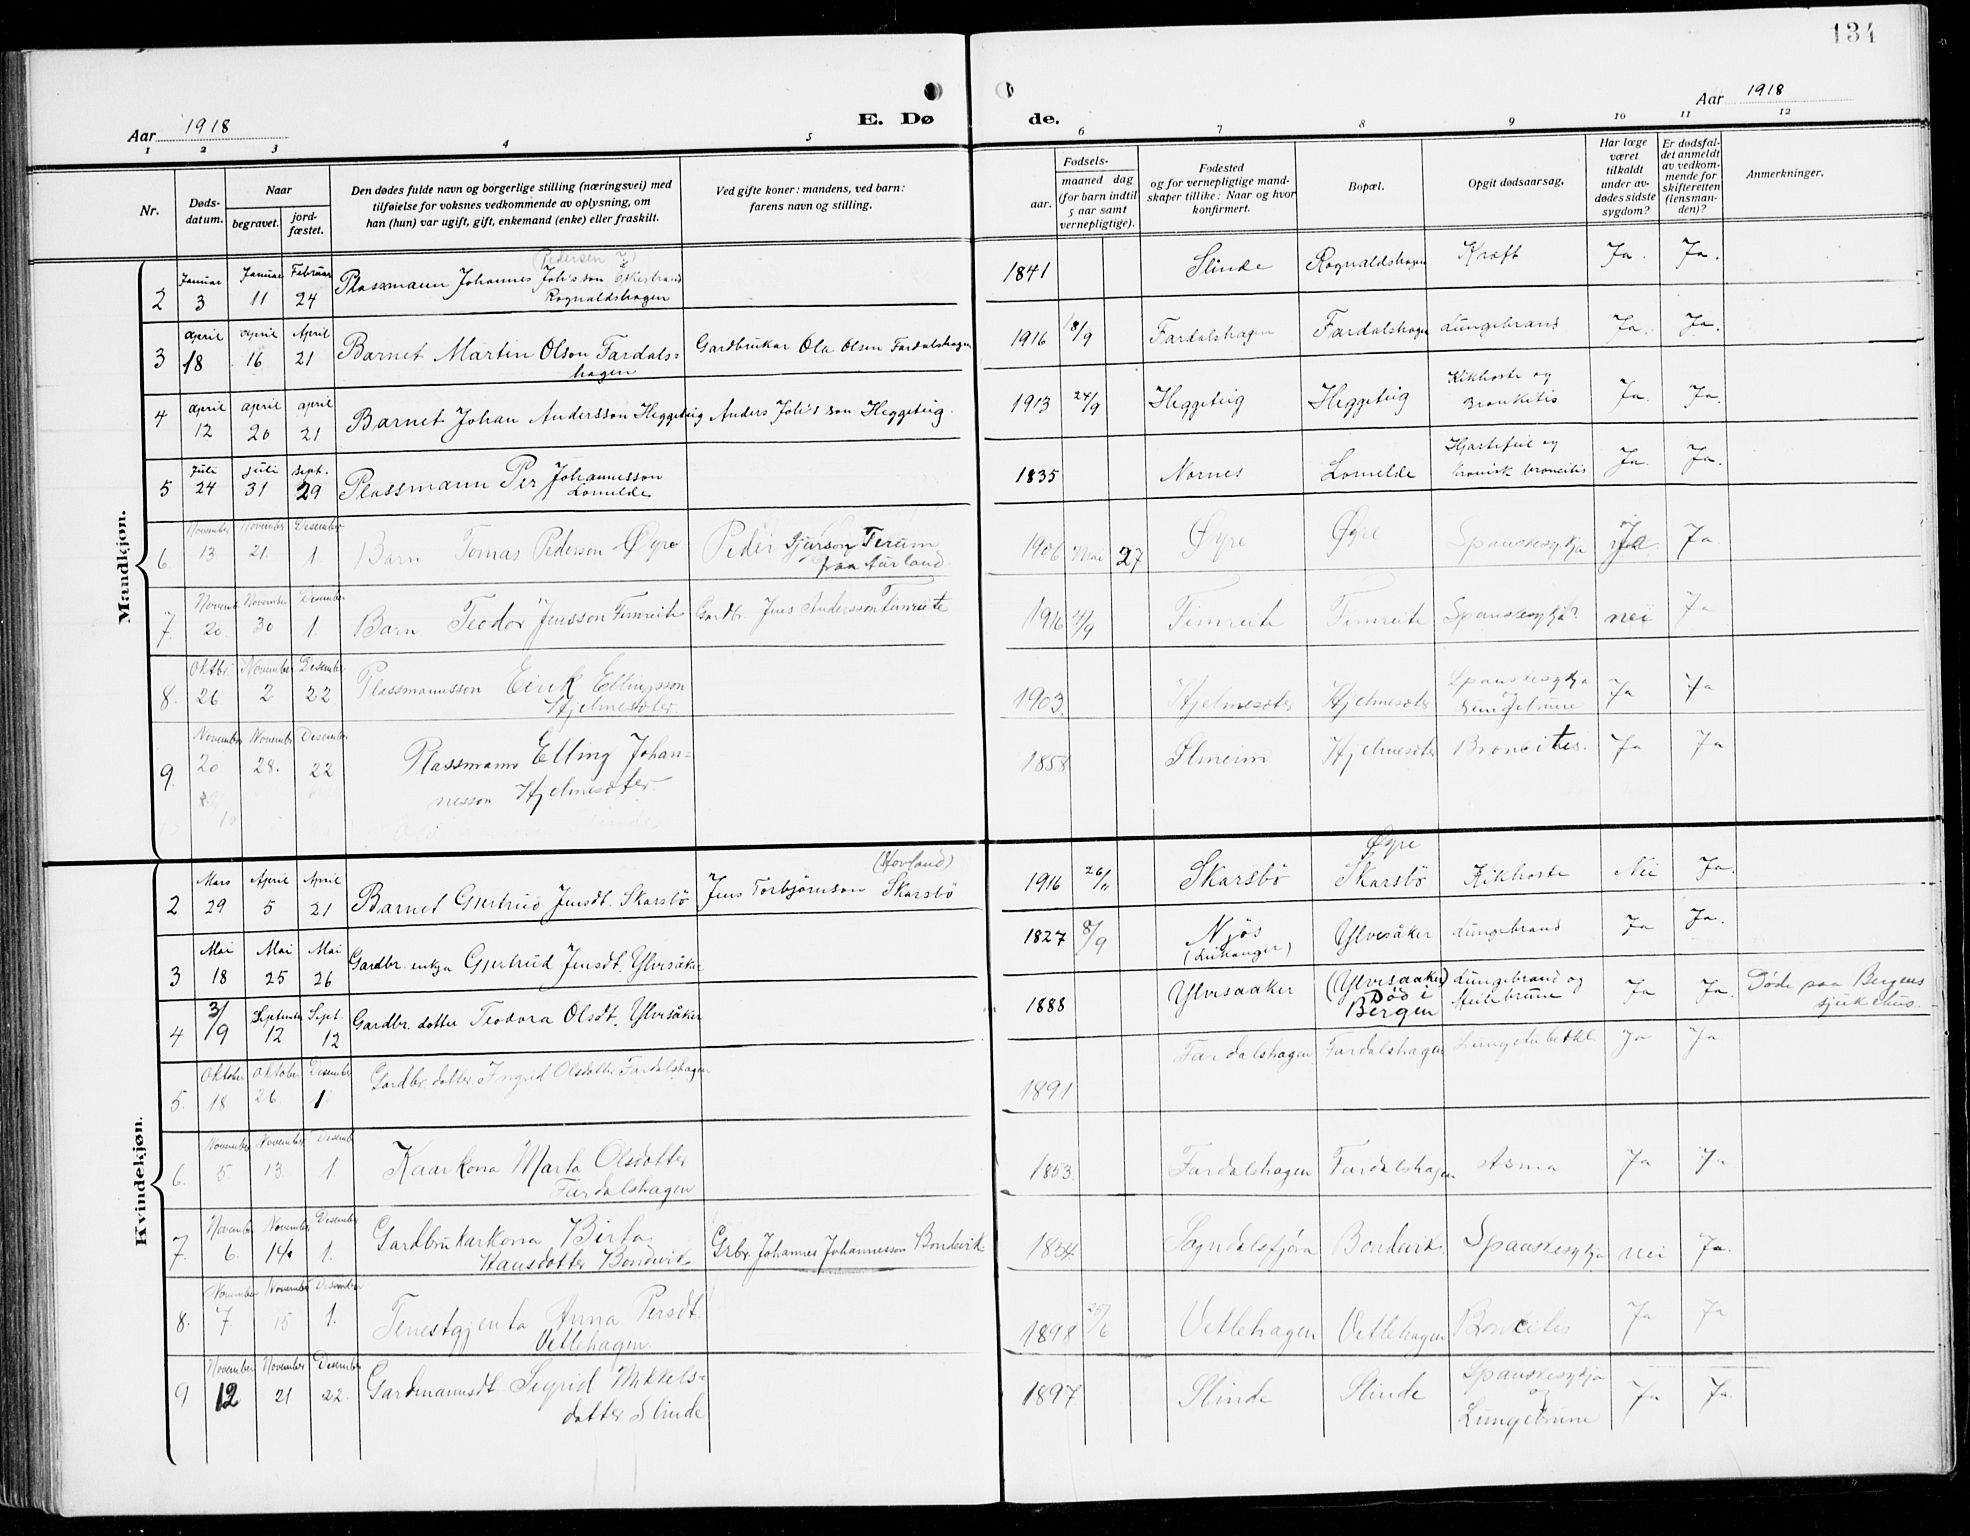 134
Aar 1918
E. Dø
de.
Aar 1918
1 2 3 4 5 6 7 8 9 10 11 12
Nr.
Døds-
datum.
Naar
begravet.
jord-
fæstet.
Den dødes fulde navn og borgerlige stilling (næringsvei) med
tilføielse for voksnes vedkommende av oplysning, om
han (hun) var ugift, gift, enkemand (enke) eller fraskilt.
Ved gifte koner: mandens, ved barn:
farens navn og stilling.
Fødsels-
aar.
maaned dag
(for barn indtil
5 aar samt
vernepligtige).
Fødested
og for vernepligtige mand-
skaper tillike: Naar og hvor
konfirmert.
Bopæl.
Opgit dødsaarsag.
Har læge
været
tilkaldt
under av-
dødes sidste
sygdom?
Er dødsfal-
det anmeldt
av vedkom-
mende for
skifteretten
(lensman-
den)?
Anmerkninger.
Mandkjøn.
2 Januar 3 Januar 11 Februar 24 Plassmann Johannes Joh's son (Pedersen ?)
Rognaldshagen
1841 Slinde Rognaldshagen Kræft Ja. Ja.
3 April 18 April 16 April 21 Barnet Martin Olson Fardals-
hagen
Gardbrukar Ola Olsen Fardalshagen 1916 18/9 Fardalshagen Fardalshagen Lungebrand Ja. Ja.
4 April 12 April 20 April 21 Barnet Johan Andersson Heggeteig Anders Joh's son Heggeteig. 1913 24/9 Heggeteig Heggeteig Kikhoste og
Bronkitis Ja. Ja.
5 Juli 24 Juli 31 Sept. 29 Plassmann Per Johannesson
Lomelde
1835 Nornes Lomelde Hjartefeil og
kronisk broncitis Ja. Ja.
6. November 13 November 21. Desember 1. Barn Tomas Pederson Øyre Peder Gjurson Terum
fraa Aurland. 1906 Mai 27 Øyre Øyre Spanskesykja Ja. Ja.
7. Novemb. 20. November 30 Desember 1 Barn Teodor Jensson Fimreite Gardbr. Jens Andersson Fimreite 1916 4/9 Fimreite Fimreite Spanskesykja nei Ja
8. Oktbr. 26 November 2. Desember 22 Plassmannsson Eirik Ellingsson
Hjelmeseter
1903. Hjelmeseter Hjelmeseter Spanskesykja
Lungebrune Ja Ja
9. November 20 Novembr 28. Desember 22 Plassmann Elling Johan-
nesson Hjelmeseter
1858 Slmeim Hjelmeseter Broncitis. Ja Ja
Kvindekjøn.
2 Mars 29 April 5 April 21 Barnet Gjertrud Jensdt. Skarsbö Jens Torbjörnson (Hovland) Skarsbö 1916 26/11 Skarsbö Øyre
Skarsbö Kikhoste Nei Ja.
3 Mai 18 Mai 25 Mai 26 Gardbr. enkja Gjertrud Jensdt. Ylvisåker
1827 8/9 Njøs
(Leikanger) Ylvesåker Lungebrand Ja Ja.
4 3/9 September 12 Sept. 12 Gardbr. dotter Teodora Olsdt. Ylvisåker
1888 Ylvesaaker (Ylvesaaker)
Død i
Bergen Lungebrand og
Heilebrune Ja Ja. Døde paa Bergens
sjukehus.
5. Oktober 18 Oktober 26. Desember 1. Gardbr. dotter Ingrid Olsdotter Fardalshagen
1891 Fardalshagen Fardalshagen Lungetuberkl. Ja Ja
6. November 5 November 13. Desemb 1. Kaarkona Marta Olsdotter
Fardalshagen
1853. Fardalshagen Fardalshagen Asma Ja Ja
7. November 6. November 14. Desember 1. Gardbrukarkona Birta
Hansdotter Bondevik
Grbr. Johannes Johannesson Bondevik 1854 Sogndalsfjøra Bondevik Spanskesykja nei Ja.
8. November 7. November 15 Desember 1. Tenestgjenta Anna Persdt.
Vetlehagen
1898 25/6 Vetlehagen Vetlehagen Broncitis Ja Ja
9 November 12 November 21 Desember 22. Gardmannsdt. Sigrid Mikkels-
dotter Slinde
1897 Slinde Slinde Spanskesykja
og
Lungebrune Ja Ja.